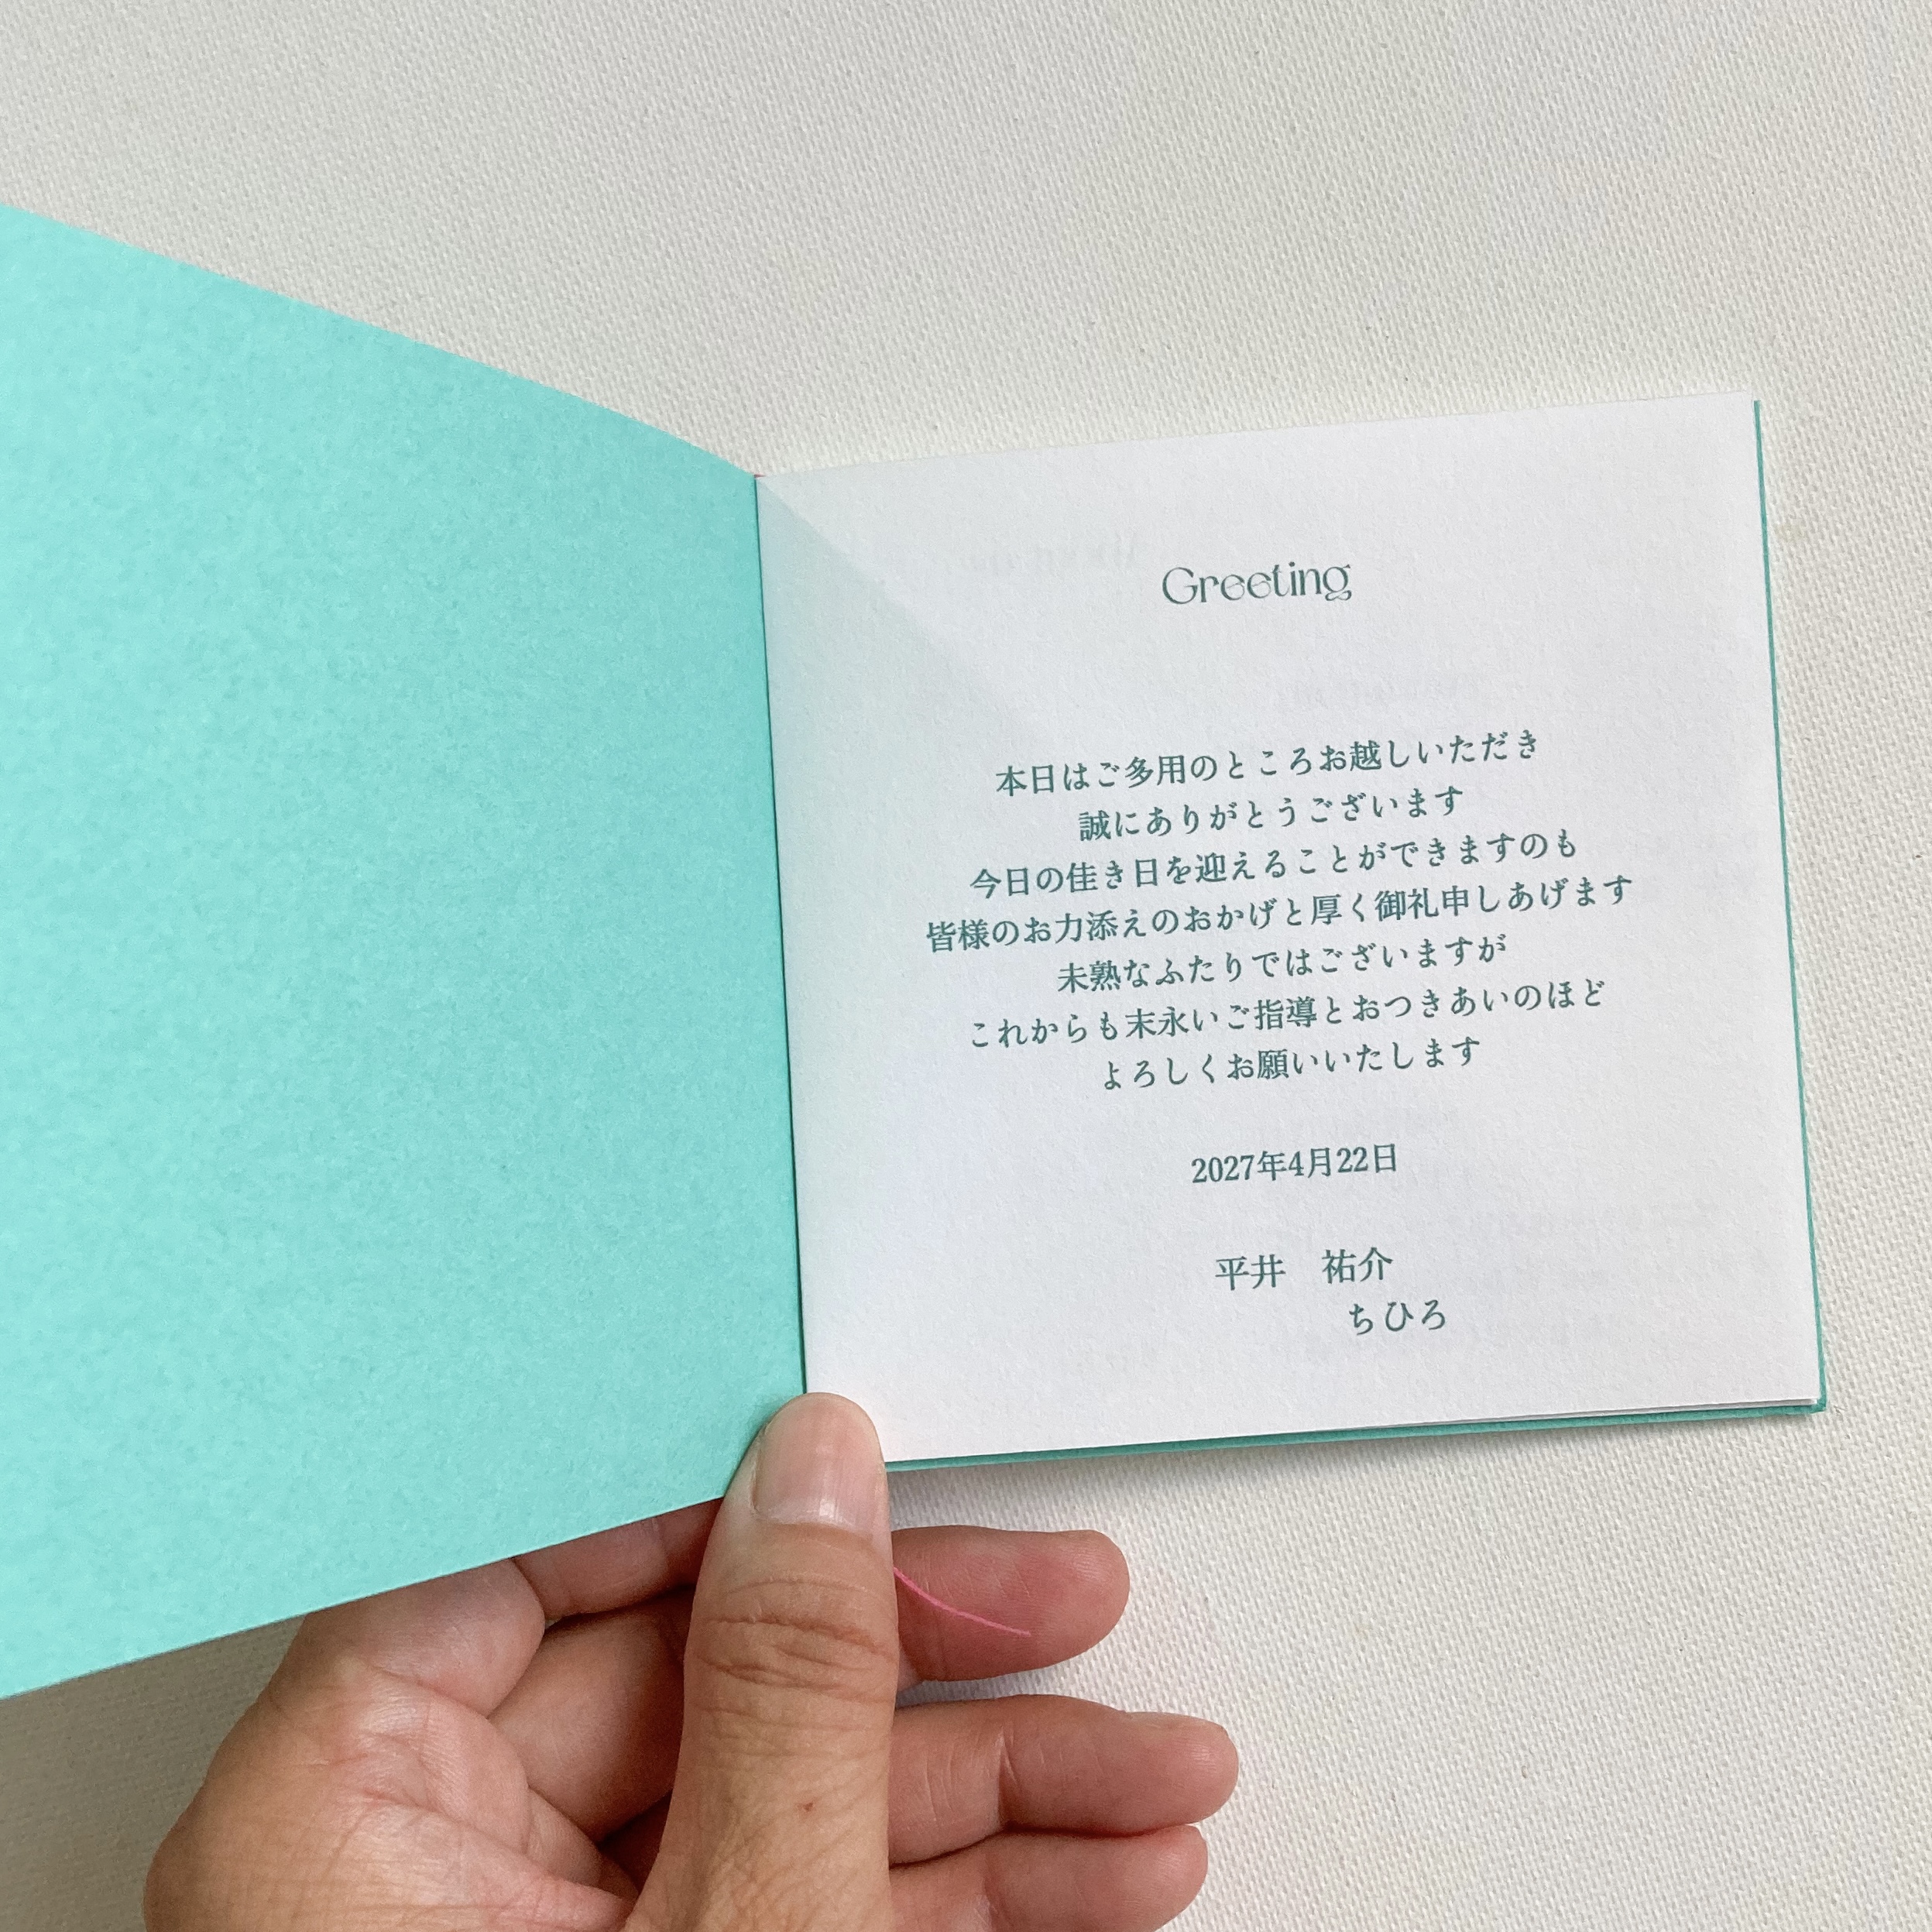 Greeting
本日はご多用のところお越しいただき
誠にありがとうございます
今日の佳き日を迎えることができますのも
皆様のお力添えのおかげと厚く御礼申しあげます
未熟なふたりではございますが
これからも末永いご指導とおつきあいのほど
よろしくお願いいたします
2027年4月22日
平井　祐介
ちひろ